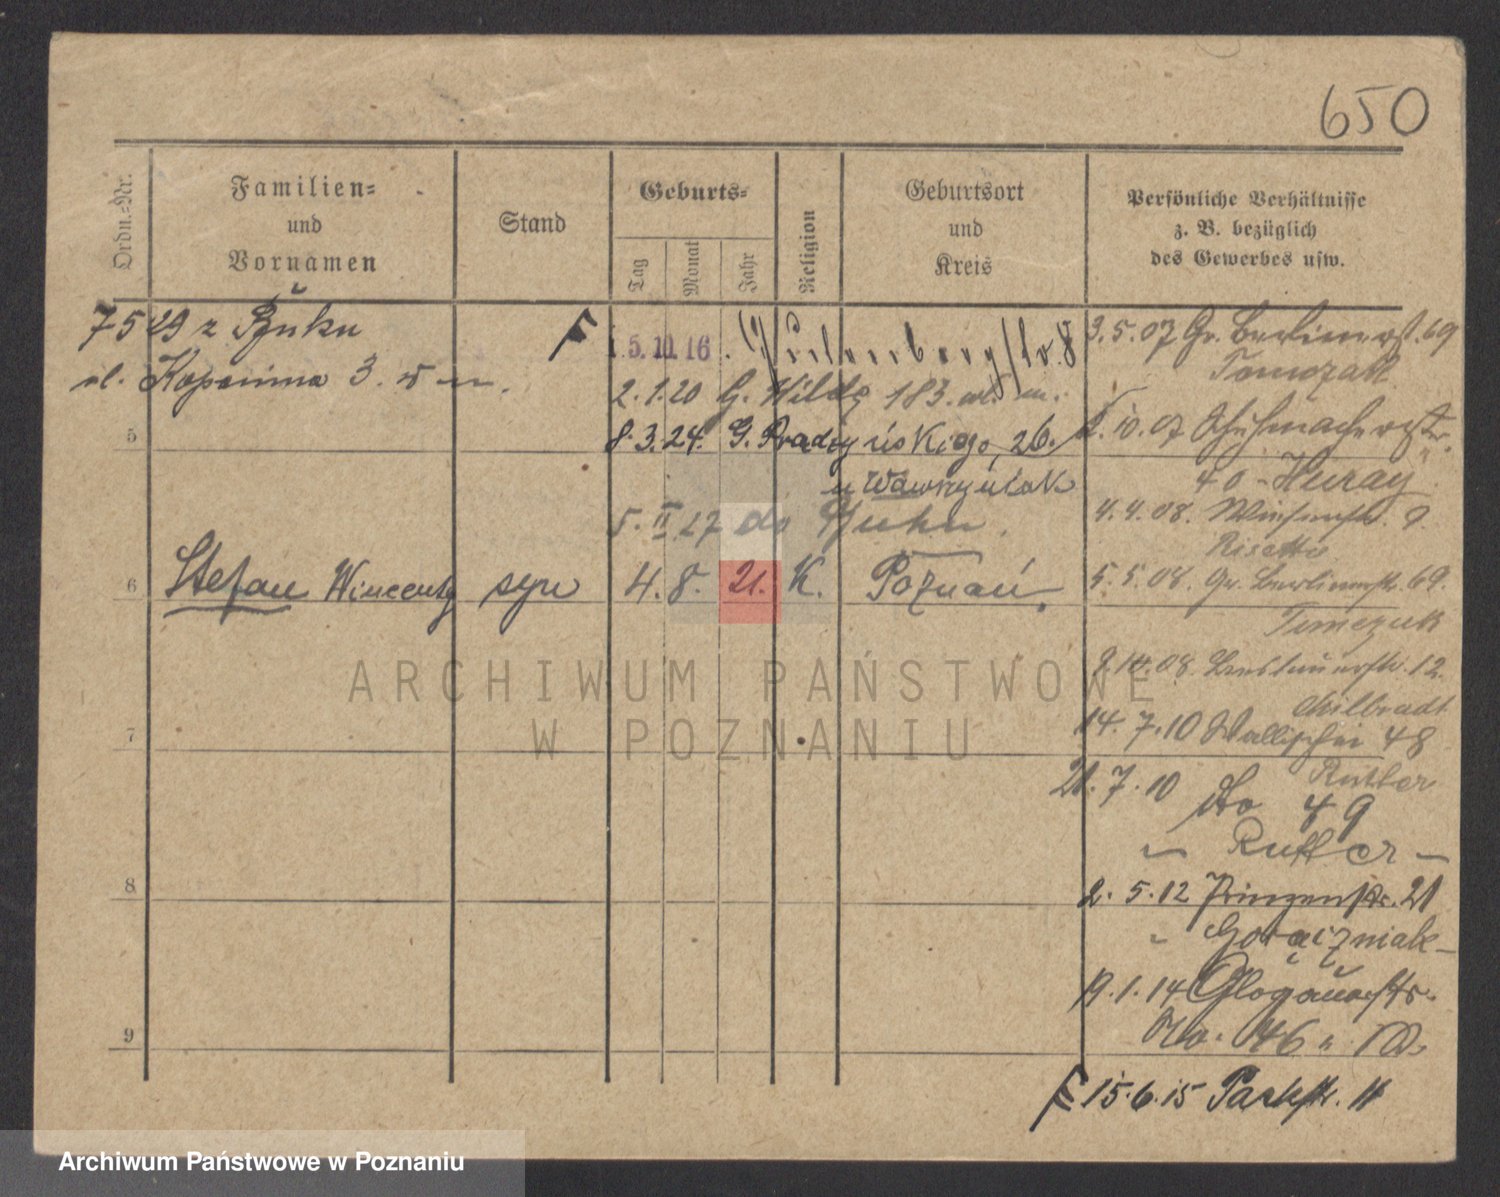 650
Ordn.-Nr.
Familien-
und
Vornamen
Stand
Geburts-
Tag
Monat
Jahr
Religion
Geburtsort
und
Kreis
Persönliche Verhältnisse
z. B. bezüglich
des Gewerbes usw.
7 5 29 z Buku
ul. Kopanina 3. w m.
15.10.16
8
2.1.20 G. Wilda 183. wł. m.
8.3.24. G. Prądzyńskiego, 26.
u Wawrzyniak
5. II 27 do Buku.
5
6 Stefan Wincenty syn 4. 8. 21. K. Poznań.
7
8
9
3.5.07 Gr. Berlinerst. 69
Tomczak
2.10.07 Schuhmacherstr.
40 - Huray
4.4.08. 9
5.5.08. Gr. Berlinerstr. 69.
Tomczak
08. Breslauerstr. 12.
Milbradt
14.7.10 Wallischei 48
Rutter
21.7.10 dto 49
" Rutter -
2.5.12 Prinzenstr. 21
" Gorączniak -
19.1.14 Glogauerstr.
No. 46 "
15.6.15 Parkstr. 11
ARCHIWUM PAŃSTWOWE
W POZNANIU
Archiwum Państwowe w Poznaniu